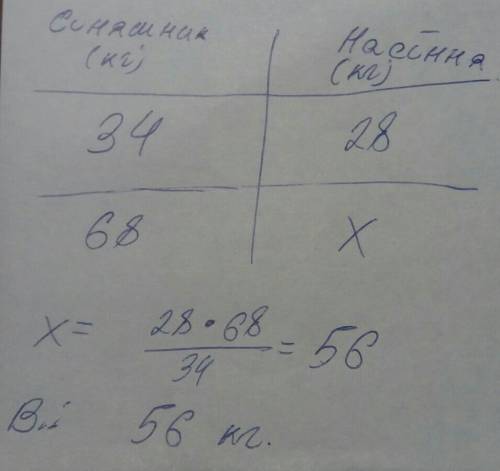 Синяшник Насіння
(кг) (кг)
34 28
68 x
x = 28 • 68 / 34 = 56
Від 56 кг.